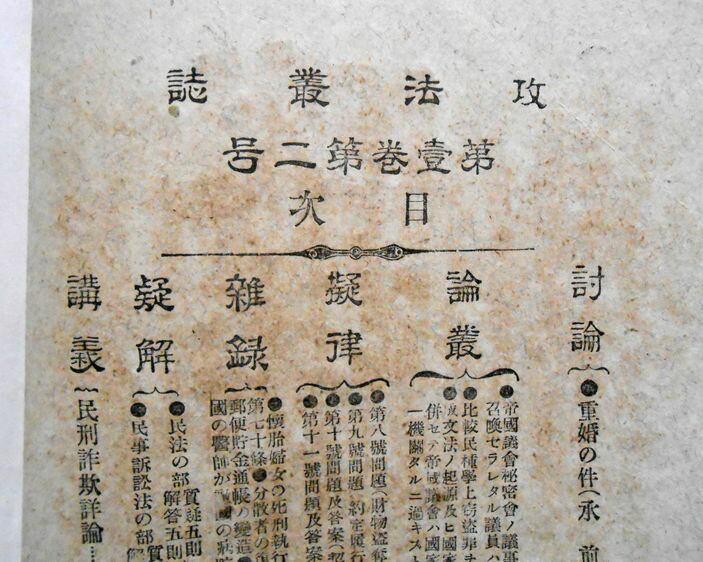 攻法叢誌
第壹巻第二号
目次
討論
●重婚の件(承前
論叢
●帝國議會秘密會ノ議事
召喚セラレタル議員ハ
●比較民種學上窃盗罪ナ
●成文法ノ起源及ヒ國家
併セテ帝國議會ハ國家
一機關タルニ過キスト
擬律
●第八號問題(財物盗奪
●第九號問題 約定履行
●第十號問題及答案
●第十一號問題及答案
雜録
●懷胎婦女の死刑執行
第七十條●分散者の
郵便貯金通帳の變造●
國の醫師が
疑解
●民法の部 質疑五則
解答五則
●民事訴訟法の部 質
解
講義
民刑詐欺詳論…